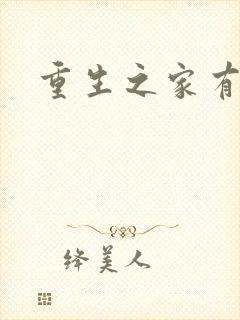 重生之家有
绛美人